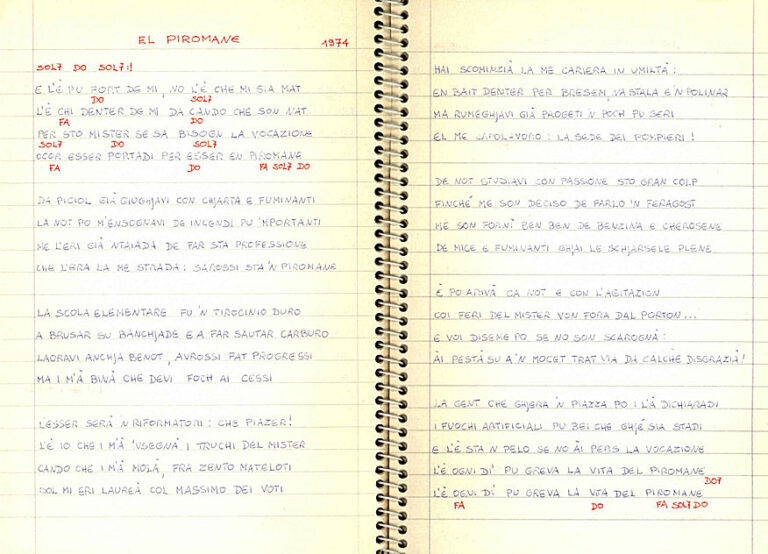 EL PIROMANE 1974
SOL7 DO SOL7:||
E L'È PU FORT DE MI, NO L'È CHE MI SIA MAT
DO SOL7
L'È CHI DENTER DE MI DA CANDO CHE SON NAT
FA DO
PER STO MISTER SE SA BISOGN LA VOCAZIONE
SOL7 DO SOL7
OCOR ESSER PORTADI PER ESSER EN PIROMANE
FA DO FA SOL7 DO
DA PICIOL GIÀ GIUGHJAVI CON CHJARTA E FUMINANTI
LA NOT PO M'ENSOGNAVI DE INCENDI PU 'MPORTANTI
ME L'ERI GIÀ NTAIADA DE FAR STA PROFESSIONE
CHE L'ERA LA ME STRADA: SAROSSI STA 'N PIROMANE
LA SCOLA ELEMENTARE FU 'N TIROCINIO DURO
A BRUSAR SU BANCHJADE E A FAR SAUTAR CARBURO
LAORAVI ANCHJA BENOT, AVROSSI FAT PROGRESSI
MA I M'À BINÀ CHE DEVI FOCH AI CESSI
L'ESSER SERÀ 'N RIFORMATORI: CHE PIAZER!
L'È IO CHE I M'À 'NSEGNÀ I TRUCHI DEL MISTER
CANDO CHE I M'À MOLÀ, FRA ZENTO MATELOTI
SOL MI ERI LAUREÀ COL MASSIMO DEI VOTI
HAI SCOMINZIÀ LA ME CARIERA IN UMILTÀ:
EN BAIT DENTER PER BRESEM, NA STALA E 'N POLINAR
MA RUMEGHJAVI GIÀ PROGETI 'N POCH PU SERI
EL ME CAPOLAVORO: LA SEDE DEI POMPIERI!
DE NOT STUDIAVI CON PASSIONE STO GRAN COLP
FINCHÉ ME SON DECISO DE FARLO 'N FERAGOST
ME SON FORNÌ BEN BEN DE BENZINA E CHEROSENE
DE MICE E FUMINANTI GHJAI LE SCHJARSELE PLENE
È PO ARIVÀ CA NOT E CON L'AGITAZION
COI FERI DEL MISTER VON FORA DAL PORTON...
E VOI DISEME PO SE NO SON SCAROGNÀ:
AI PESTÀ SU A 'N MOCET TRAT VIA DA CALCHE DISGRAZIÀ!
LA GENT CHE GHJERA 'N PIAZZA PO I L'À DICHIARADI
I FUOCHI ARTIFICIALI PU BEI CHE GHJE SIA STADI
E L'È STA 'N PELO SE NO AI PERS LA VOCAZIONE
L'È OGNI DÌ PU GREVA LA VITA DEL PIROMANE
DO7
L'È OGNI DÌ PU GREVA LA VITA DEL PIROMANE
FA DO FA SOL7 DO